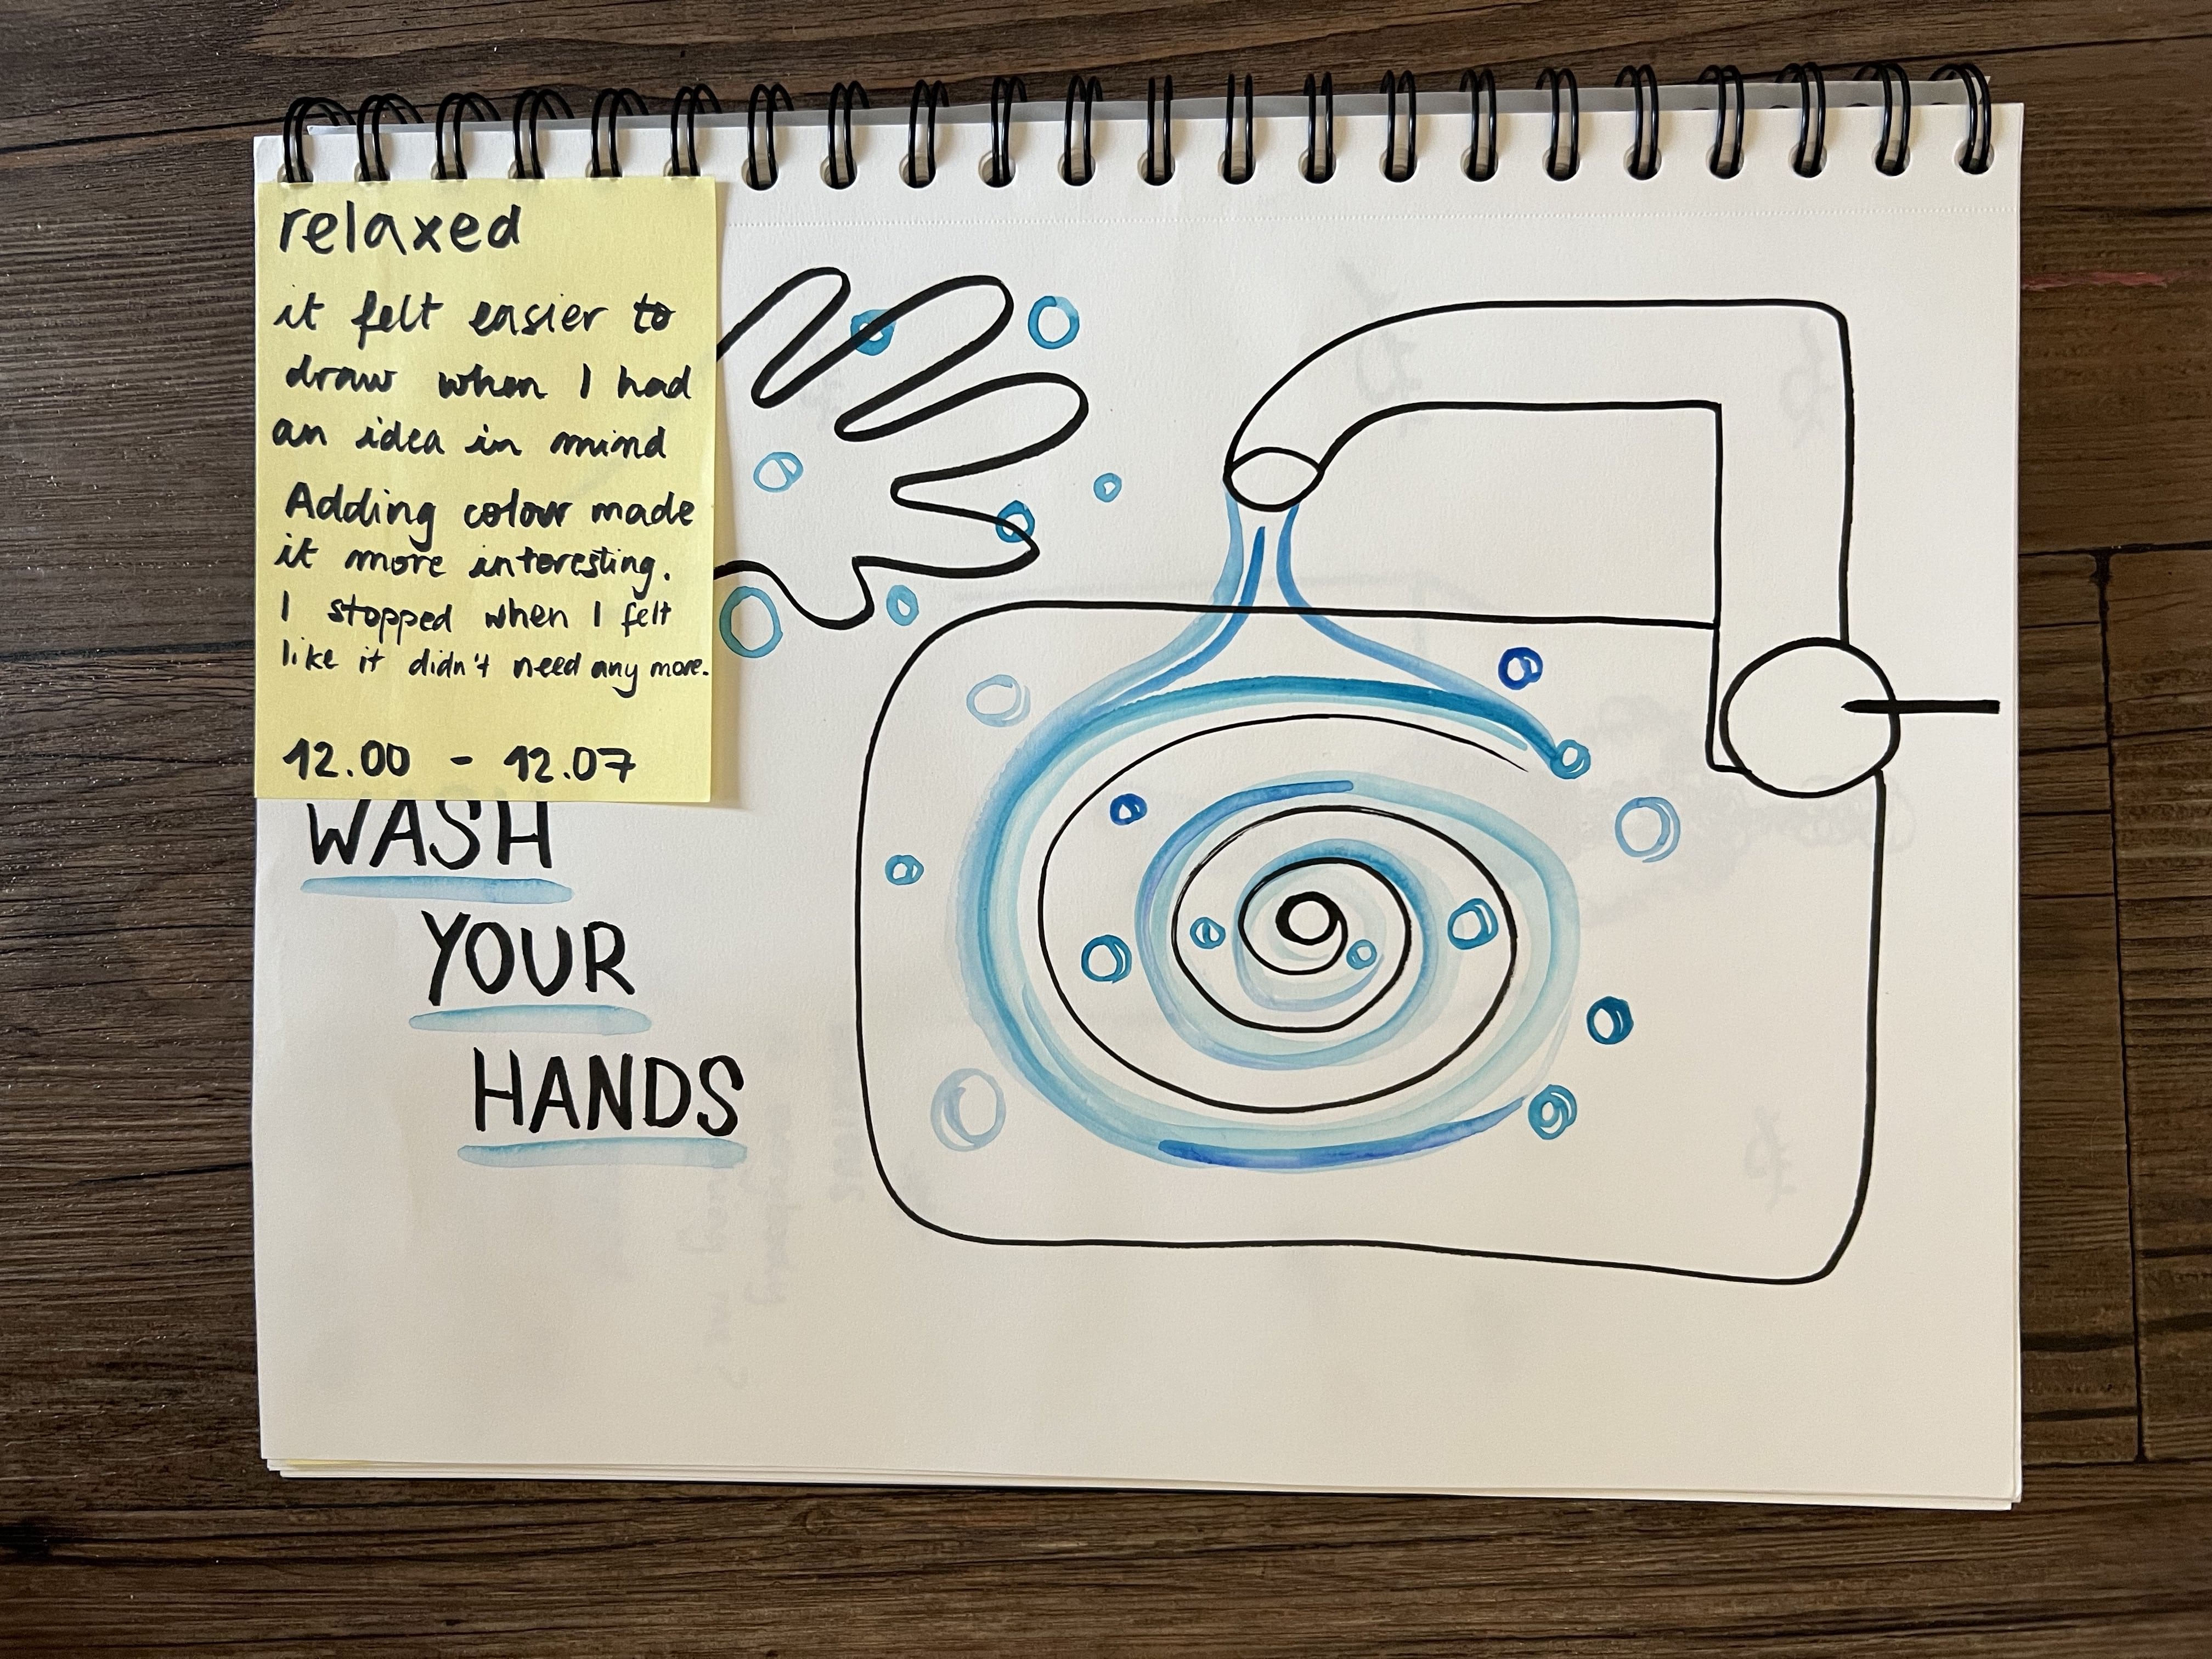 relaxed
it felt easier to
draw when I had
an idea in mind
Adding colour made
it more interesting.
I stopped when I felt
like it didn't need any more.
12.00 - 12.07
WASH
YOUR
HANDS